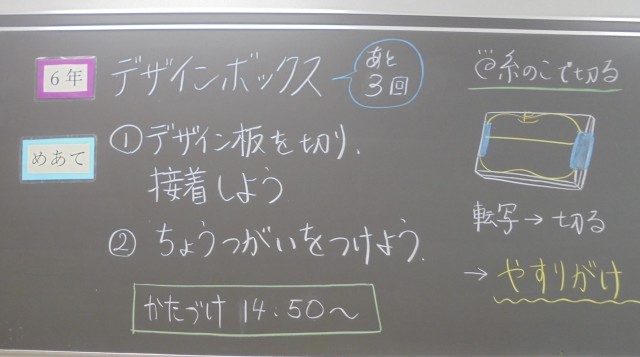 6年
デザインボックス
あと
3回
めあて
①デザイン板を切り、
接着しよう
②ちょうつがいをつけよう.
かたづけ 14:50〜
糸のこで切る
転写→切る
→やすりがけ